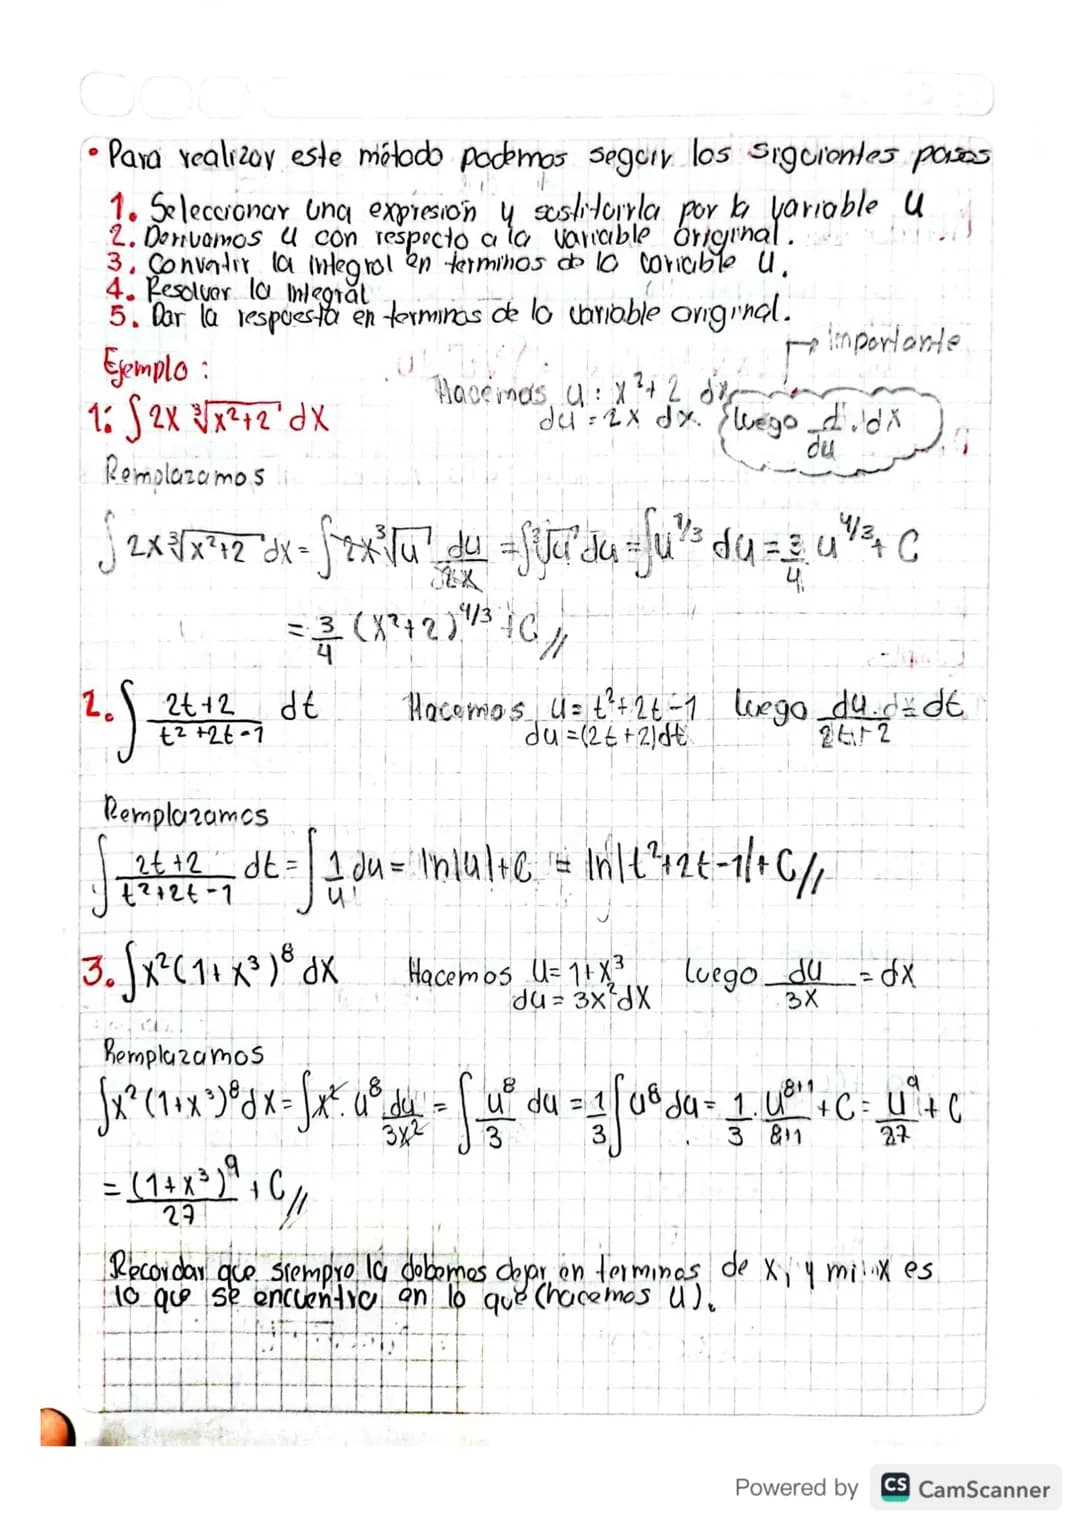 • Para realizar este método podemos seguir los siguientes pasos
1. Seleccionar una expresión y sustituirla por la variable u
2. Derivamos u con respecto a la variable original.
3. Convertir la integral en terminos de la variable u.
4. Resolver la integral
5. Dar la respuesta en terminos de la variable original.
→ importante
Ejemplo :
1: ∫ 2x ∛(x²+2) dx Hacemos u : x²+2 dx
du = 2x dx. luego d . dx / du
Remplazamos
∫ 2x ∛(x²+2) dx = ∫ 2x ∛u du/2x = ∫ ∛u du = ∫ u^1/3 du = 3/4 u^4/3 + C
= 3/4 (x²+2)^4/3 + C //
2. ∫ (2t+2)/(t²+2t-1) dt Hacemos u = t²+2t-1 luego du/(2t+2) = dt
du = (2t+2)dt
Remplazamos
∫ (2t+2)/(t²+2t-1) dt = ∫ 1/u du = ln|u|+C = ln|t²+2t-1|+C //
3. ∫ x²(1+x³)⁸ dx Hacemos u = 1+x³ luego du/3x = dx
du = 3x²dx
Remplazamos
∫ x²(1+x³)⁸ dx = ∫ x². u⁸ du/3x² = ∫ u⁸/3 du = 1/3 ∫ u⁸ du = 1/3 . u^8+1/8+1 + C = u⁹/27 + C
= (1+x³)⁹/27 + C //
Recordar que siempre la debemos dejar en terminos de x, y mi x es
lo que se encuentra en lo que (hacemos u).
Powered by CS CamScanner